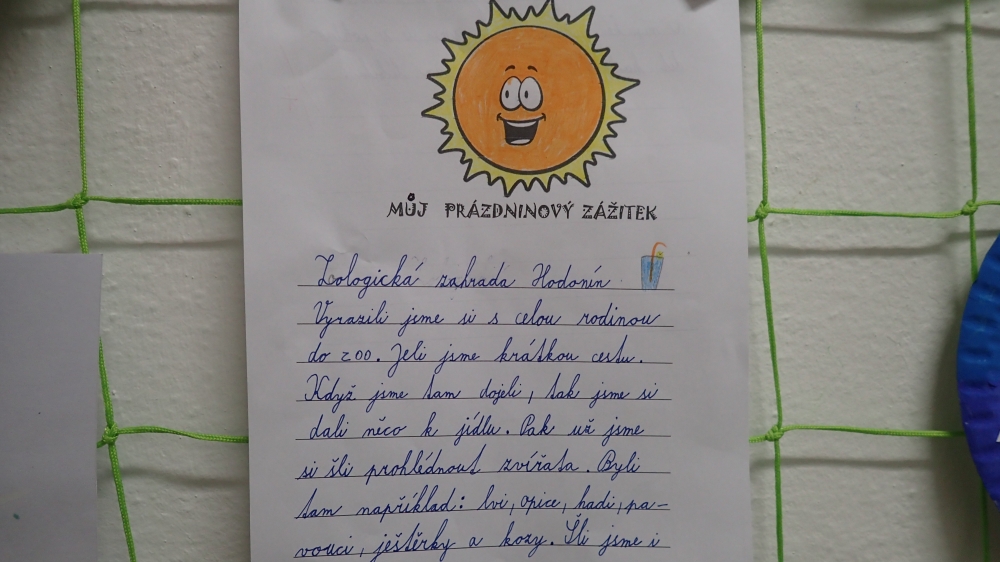 MŮJ PRÁZDNINOVÝ ZÁŽITEK
Zologická zahrada Hodonín
Vyrazili jsme si s celou rodinou
do zoo. Jeli jsme krátkou cestu.
Když jsme tam dojeli, tak jsme si
dali něco k jídlu. Pak už jsme
si šli prohlédnout zvířata. Byli
tam například: lvi, opice, hadi, pa-
vouci, ještěrky a kozy. Šli jsme i